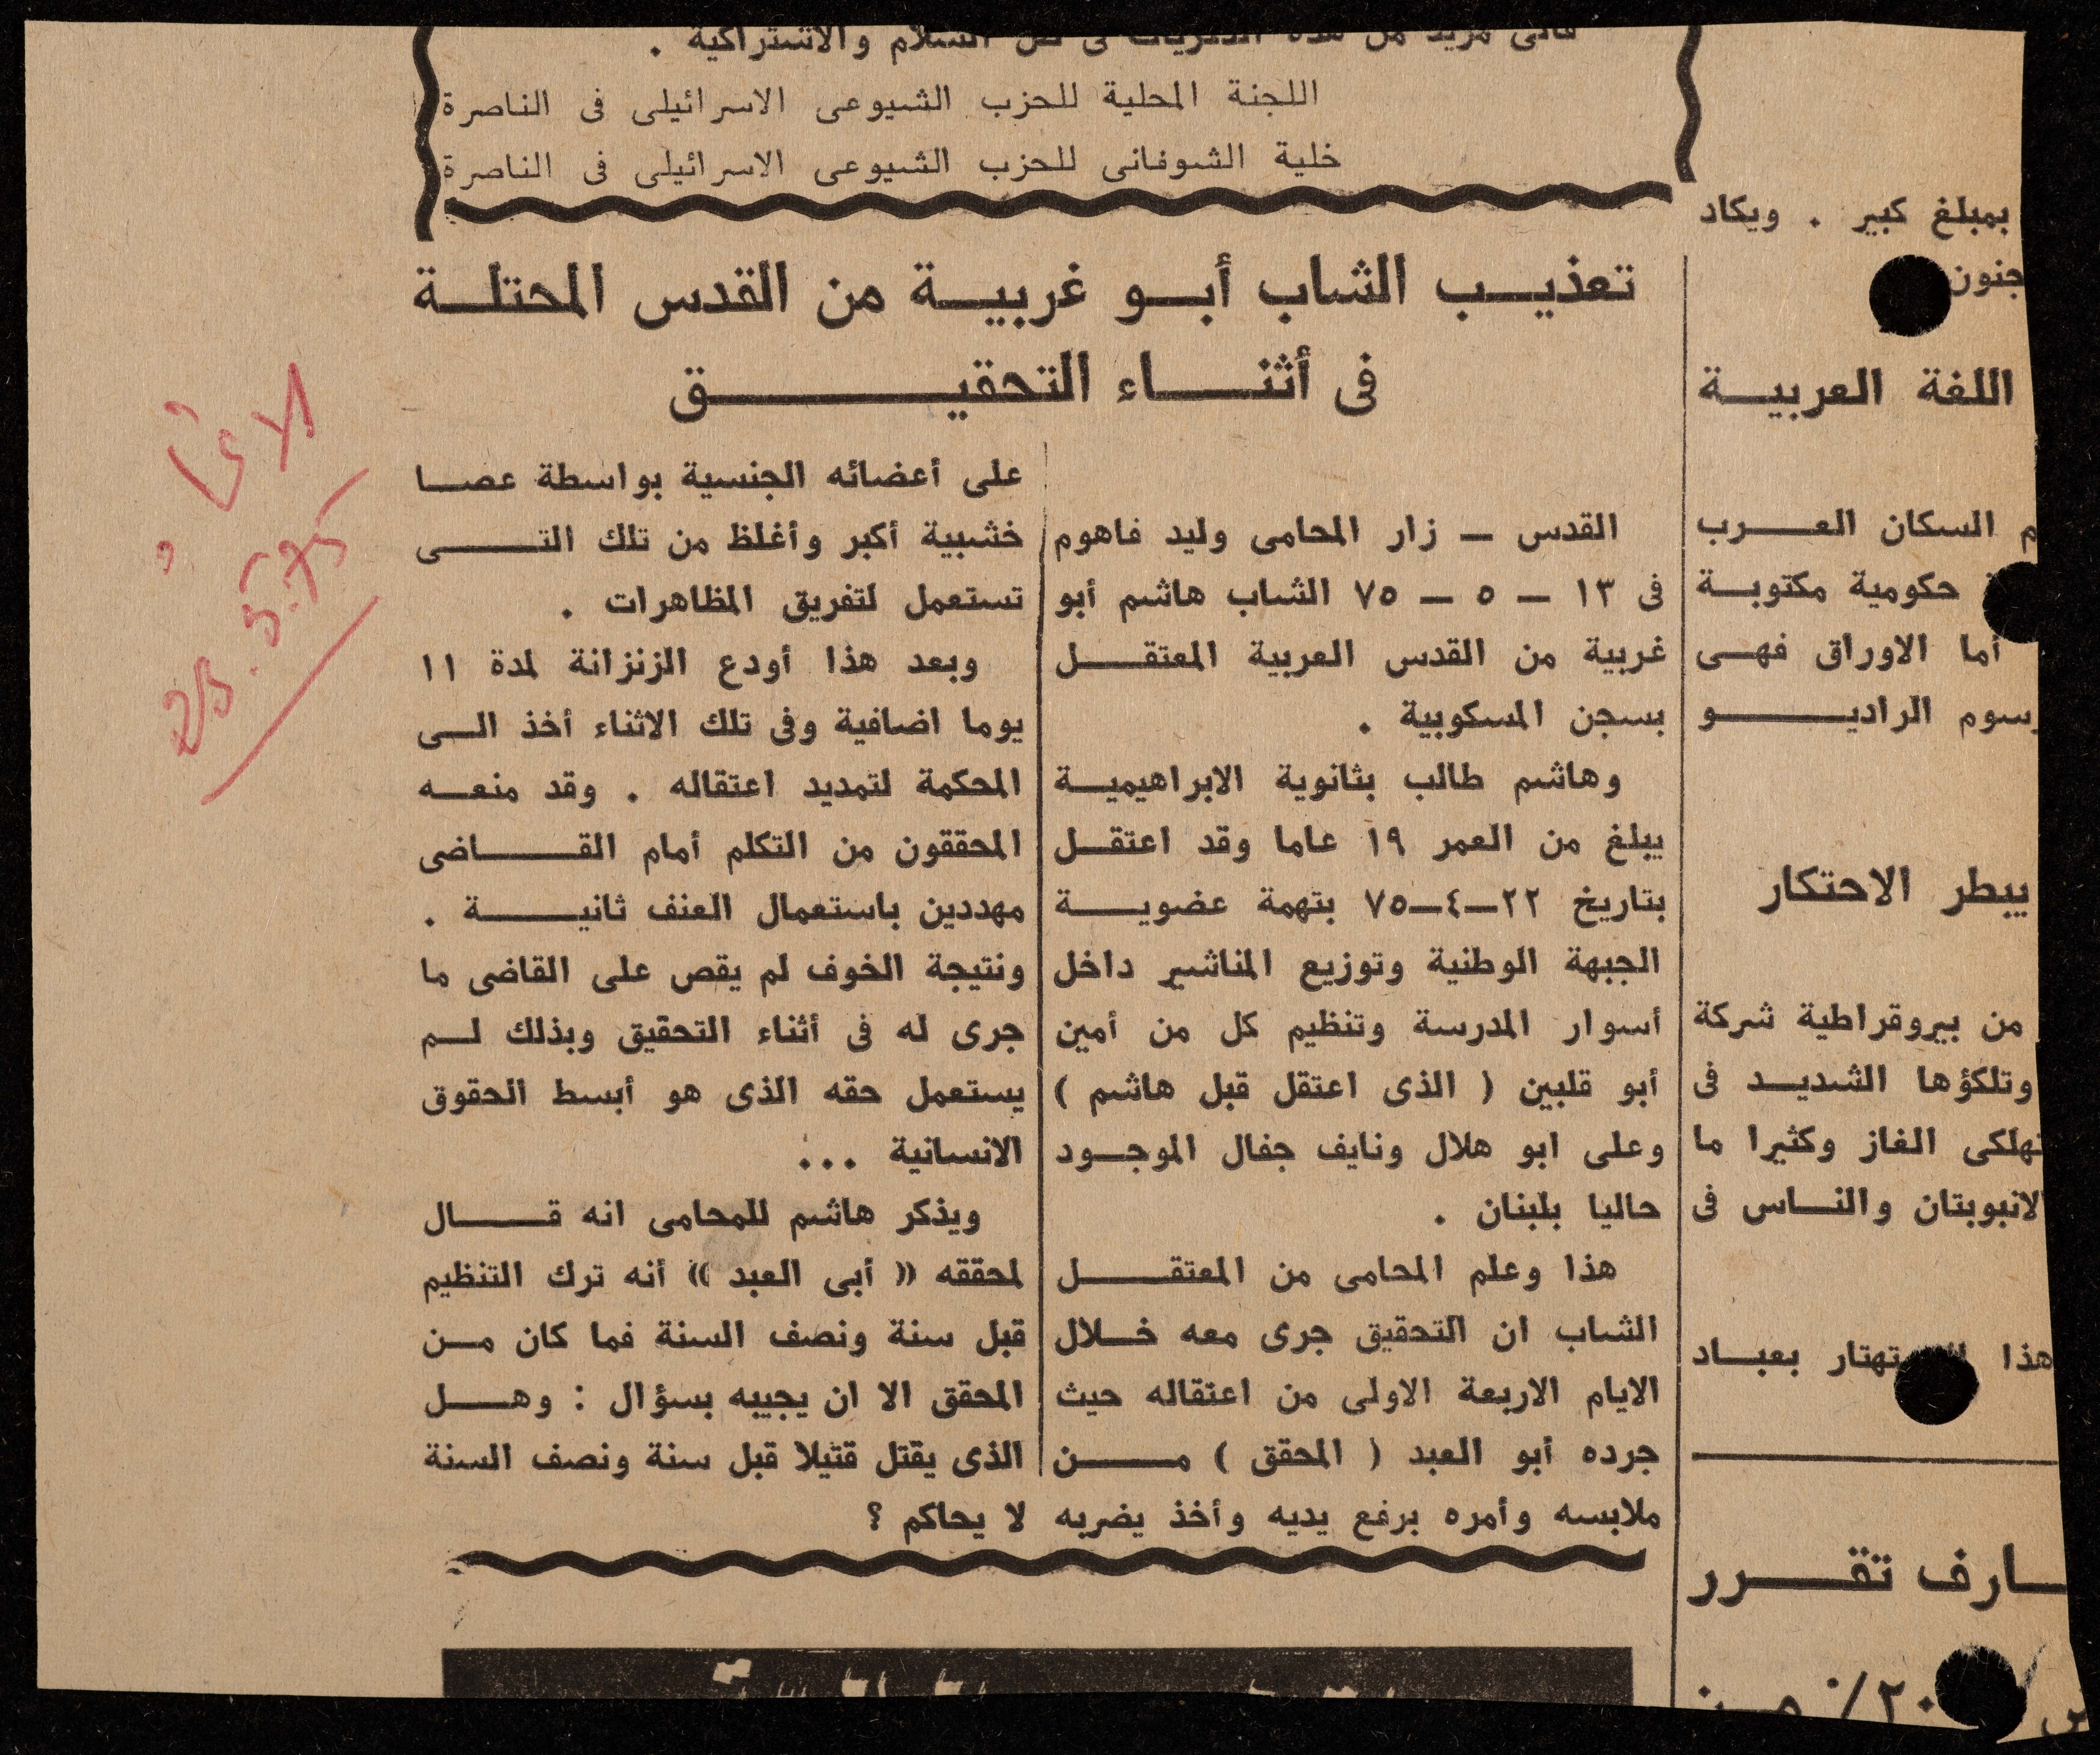 السلام والاشتراكية .
اللجنة المحلية للحزب الشيوعى الاسرائيلى فى الناصرة
خلية الشوفانى للحزب الشيوعى الاسرائيلى فى الناصرة
بمبلغ كبير . ويكاد
جنون
اللغة العربيــة
السكان العـــرب
حكومية مكتوبــة
أما الاوراق فهــى
رسوم الراديـــو
يبطر الاحتكار
من بيروقراطية شركة
وتلكؤها الشديــد فى
الغاز وكثيرا ما
والنــاس فى
هذا بعبــاد
تقـــرر
٢٠٪
تعذيــب الشاب أبــو غربيــة من القدس المحتلــة
فى أثنـــاء التحقيـــــــق
القدس — زار المحامى وليد فاهوم
فى ١٣ — ٥ — ٧٥ الشاب هاشم أبو
غربية من القدس العربية المعتقـــل
بسجن المسكوبية .
وهاشم طالب بثانوية الابراهيميــة
يبلغ من العمر ١٩ عاما وقد اعتقــل
بتاريخ ٢٢—٤—٧٥ بتهمة عضويـــة
الجبهة الوطنية وتوزيع المناشير داخل
أسوار المدرسة وتنظيم كل من أمين
أبو قلبين ( الذى اعتقل قبل هاشم )
وعلى ابو هلال ونايف جفال الموجــود
حاليا بلبنان .
هذا وعلم المحامى من المعتقـــــل
الشاب ان التحقيق جرى معه خــلال
الايام الاربعة الاولى من اعتقاله حيث
جرده أبو العبد ( المحقق ) مـــــن
ملابسه وأمره برفع يديه وأخذ يضربه
على أعضائه الجنسية بواسطة عصــا
خشبية أكبر وأغلظ من تلك التــــى
تستعمل لتفريق المظاهرات .
وبعد هذا أودع الزنزانة لمدة ١١
يوما اضافية وفى تلك الاثناء أخذ الــى
المحكمة لتمديد اعتقاله . وقد منعــه
المحققون من التكلم أمام القـــــاضى
مهددين باستعمال العنف ثانيـــــة .
ونتيجة الخوف لم يقص على القاضى ما
جرى له فى أثناء التحقيق وبذلك لــم
يستعمل حقه الذى هو أبسط الحقوق
الانسانية ...
ويذكر هاشم للمحامى انه قــــال
لمحققه (( أبى العبد )) أنه ترك التنظيم
قبل سنة ونصف السنة فما كان مــن
المحقق الا ان يجيبه بسؤال : وهـــل
الذى يقتل قتيلا قبل سنة ونصف السنة
لا يحاكم ؟
23.5.75